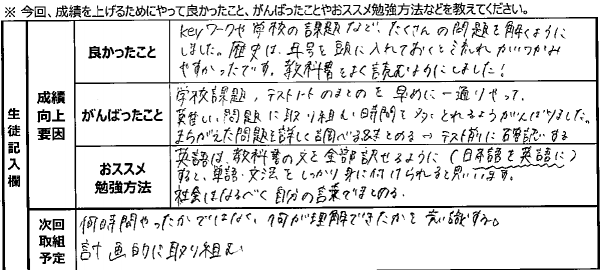 ※ 今回、成績を上げるためにやって良かったこと、がんばったことやおススメ勉強方法などを教えてください。
生徒記入欄
成績向上要因
良かったこと
keyワークや学校の課題など、たくさんの問題を解くように
しました。歴史は、年号を頭に入れておくと流れがつかみ
やすかったです。教科書をよく読むようにしました!
がんばったこと
学校課題、テストノートのまとめを早めに一通りやって、
難しい問題に取り組む時間を多くとれるようがんばりました。
まちがえた問題を詳しく調べまとめる→テスト前に再確認する
おススメ勉強方法
英語は、教科書の文を全部訳せるように(日本語を英語に)
すると、単語・文法をしっかり身に付けられると思います。
社会はなるべく自分の言葉でまとめる。
次回取組予定
何時間やったかではなく、何が理解できたかを意識する。
計画的に取り組む